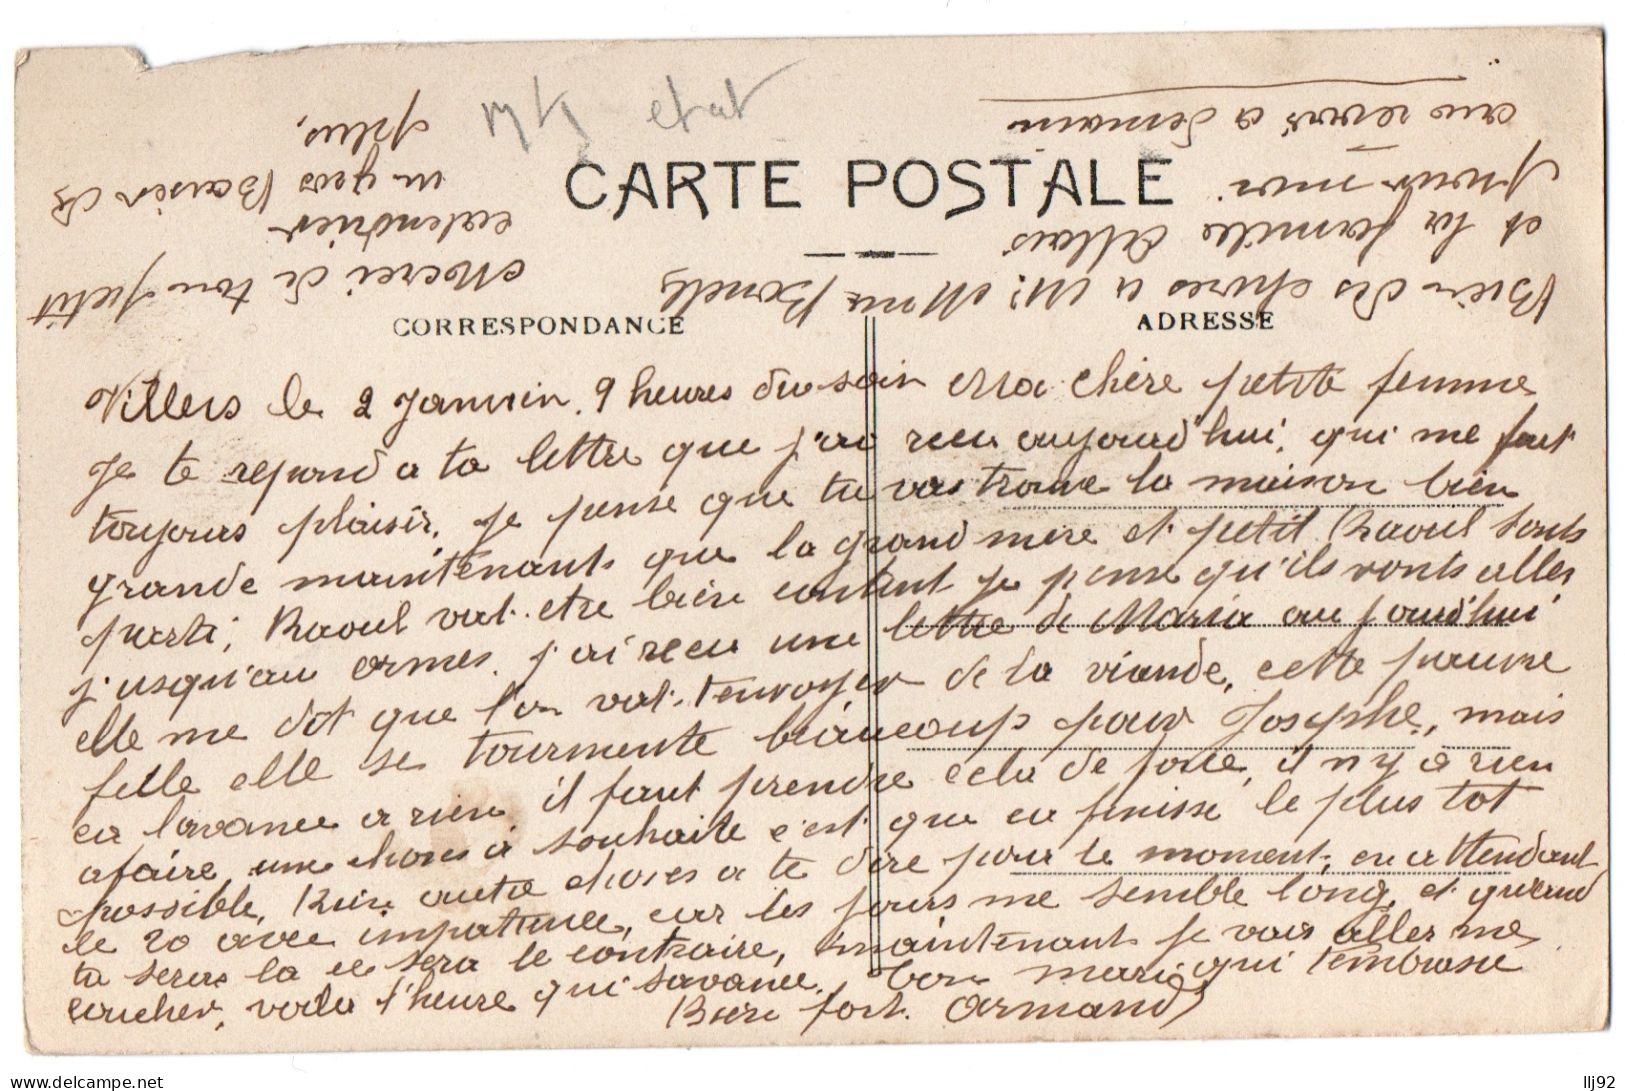 mq etat
CARTE POSTALE
CORRESPONDANCE
ADRESSE
Villers le 2 Janvier. 9 heures du soir Ma chère petite femme
Je te repond a ta lettre que j'ai recu aujourd'hui, qui me fait
toujours plaisir. Je pense que tu vas trouve la maison bien
grande maintenants que la grand mere et petit Raoul sonts
parti, Raoul vat etre bien content je pense qu'ils vonts aller
j'usqu'au ormes. j'ai recu une lettre de Maria aujourd'hui
elle me dit que l'on vat t'envoyer de la viande, cette pauvre
fille elle se tourmente beaucoup pour Josephe, mais
ca lavance a rien il faut prendre cela de joue, il n'y a rien
afaire, une choses a souhaite c'est que ca finisse le plus tot
possible. Rien autre choses a te dire pour le moment, en attendant
le 20 avec impatience, car les jours me semble long, et quand
tu seras la ce sera le contraire, maintenant je vais aller me
coucher, voila l'heure qui savance. ton mari qui t'embrasse
Bien fort. Armand
Bien des choses a Mr Mme Bonels
et la famille Allais
pour moi.
au revoir a demain
Merci de ton petit
calendrier
un gros Baiser de
plus,
llj92